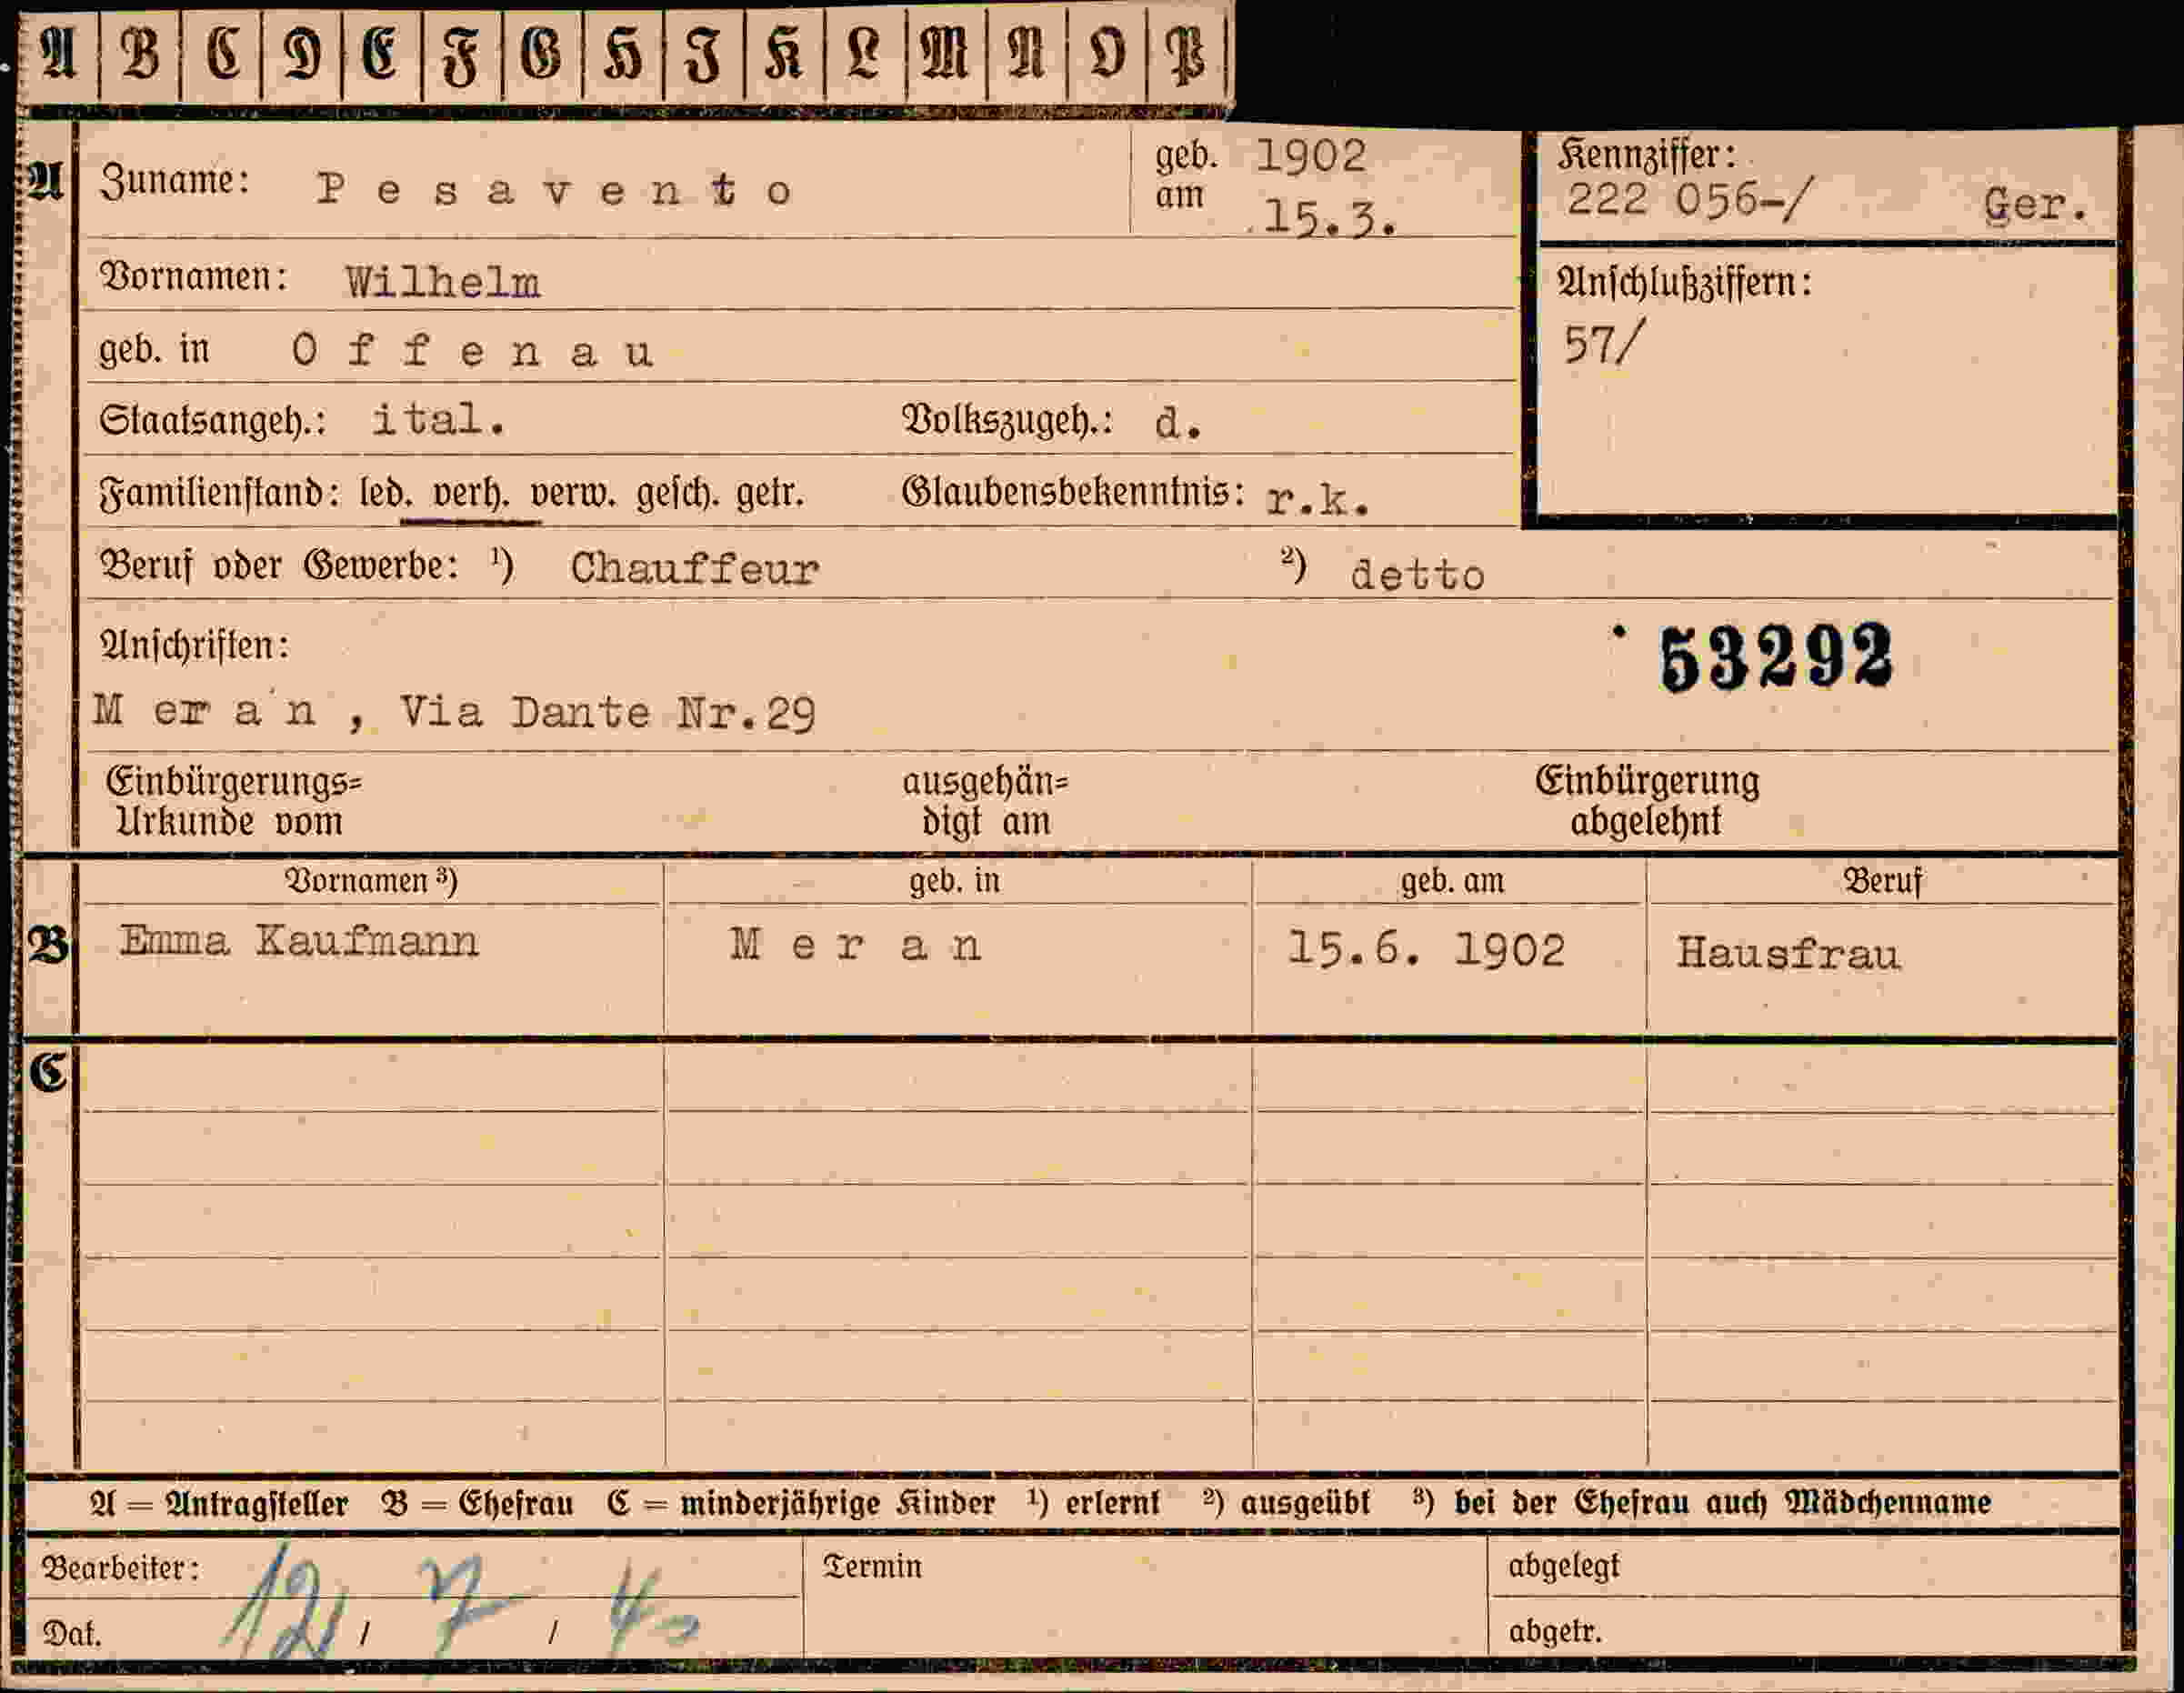 A B C D E F G H I K L M N O P
A Zuname: Pesavento geb. am 1902 15.3. Kennziffer: 222 056-/ Ger.
Vornamen: Wilhelm Anschlußziffern:
geb. in Offenau 57/
Staatsangeh.: ital. Volkszugeh.: d.
Familienstand: led. verh. verw. gesch. getr. Glaubensbekenntnis: r.k.
Beruf oder Gewerbe: ¹) Chauffeur ²) detto
Anschriften: 53292
Meran, Via Dante Nr.29
Einbürgerungs= ausgehän= Einbürgerung
Urkunde vom digt am abgelehnt
Vornamen ³) geb. in geb. am Beruf
B Emma Kaufmann Meran 15.6. 1902 Hausfrau
C
A = Antragsteller B = Ehefrau C = minderjährige Kinder ¹) erlernt ²) ausgeübt ³) bei der Ehefrau auch Mädchenname
Bearbeiter: Termin abgelegt
Dat. 12 / 7 / 40 abgetr.